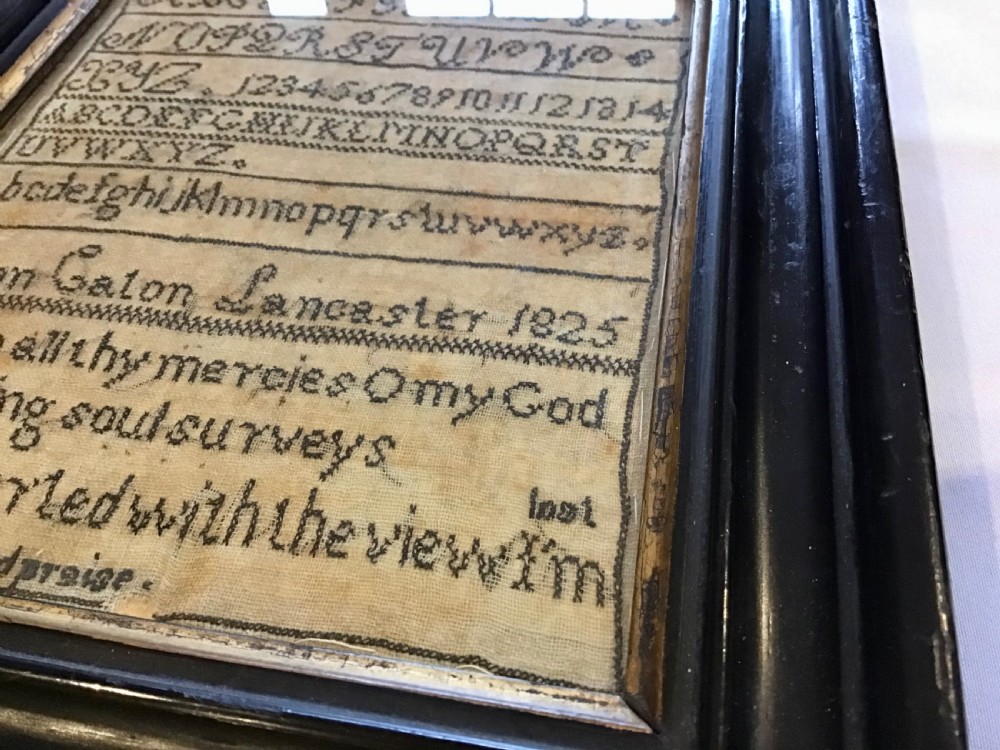 N O P Q R S T U V W
X Y Z . 1 2 3 4 5 6 7 8 9 10 11 12 13 14
A B C D E F G H I J K L M N O P Q R S T
U V W X Y Z .
b c d e f g h i j k l m n o p q r s t u v w x y z .
Eaton Lancaster 1825
all thy mercies O my God
ng soul surveys
lost
rted with the view I'm
d praise .